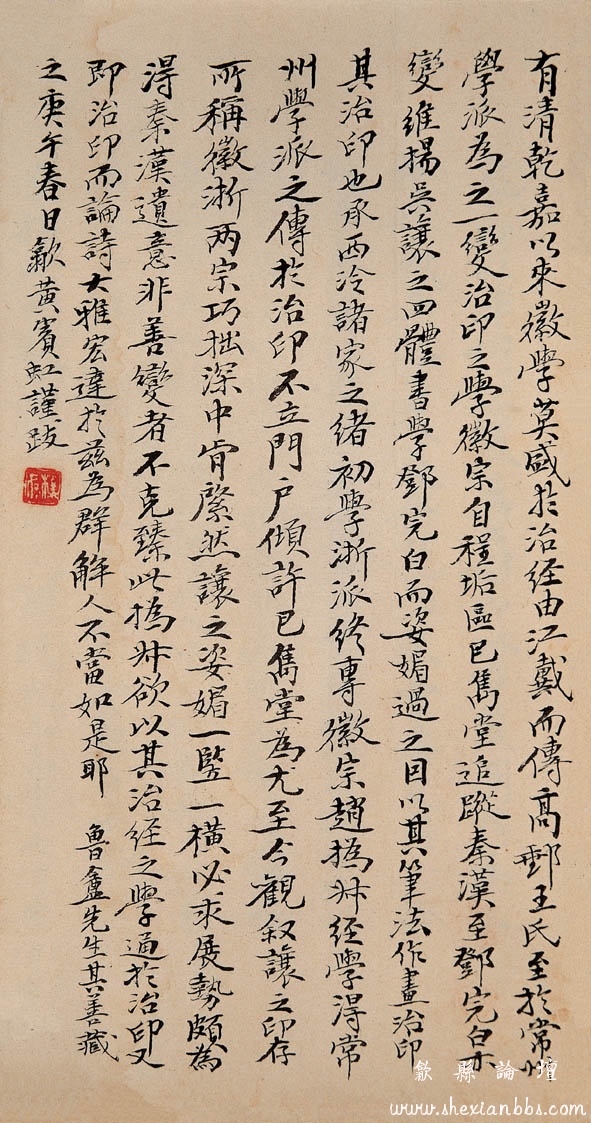 有清乾嘉以來徽學莫盛於治經由江戴而傳高郵王氏至於常州
學派為之一變治印之學徽宗自程垢區巴雋堂追蹤秦漢至鄧完白亦
變維揚吳讓之四體書學鄧完白而姿媚過之因以其筆法作畫治印
其治印也承西泠諸家之緒初學浙派終專徽宗趙撝叔經學得常
州學派之傳於治印不立門戶傾許巴雋堂為尤至今觀叙讓之印存
所稱徽浙两宗巧拙深中肯綮然讓之姿媚一竪一橫必求展勢頗為
得秦漢遺意非善變者不克臻此撝叔欲以其治經之學通於治印又
即治印而論詩大雅宏達於兹為群解人不當如是耶 魯盦先生其善藏
之庚午春日歙黃賓虹謹跋
歙縣論壇
www.shexianbbs.com